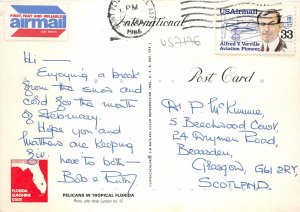 FIRST, FAST AND RELIABLE
airmail
PM
1986
International
US7176
USAirmail
Alfred V. Verville
Aviation Pioneer
33
Post Card
Hi —
Enjoying a break
from the snow and
cold for the month
of February.
Hope you and
Matthew are keeping
fine here to both —
Bob & Ruth
Dr P McKinnie,
5 Beechwood Court,
24 Drymen Road,
Bearsden,
Glasgow G61 2RY,
SCOTLAND.
FLORIDA
SUNSHINE
STATE
PELICANS IN TROPICAL FLORIDA